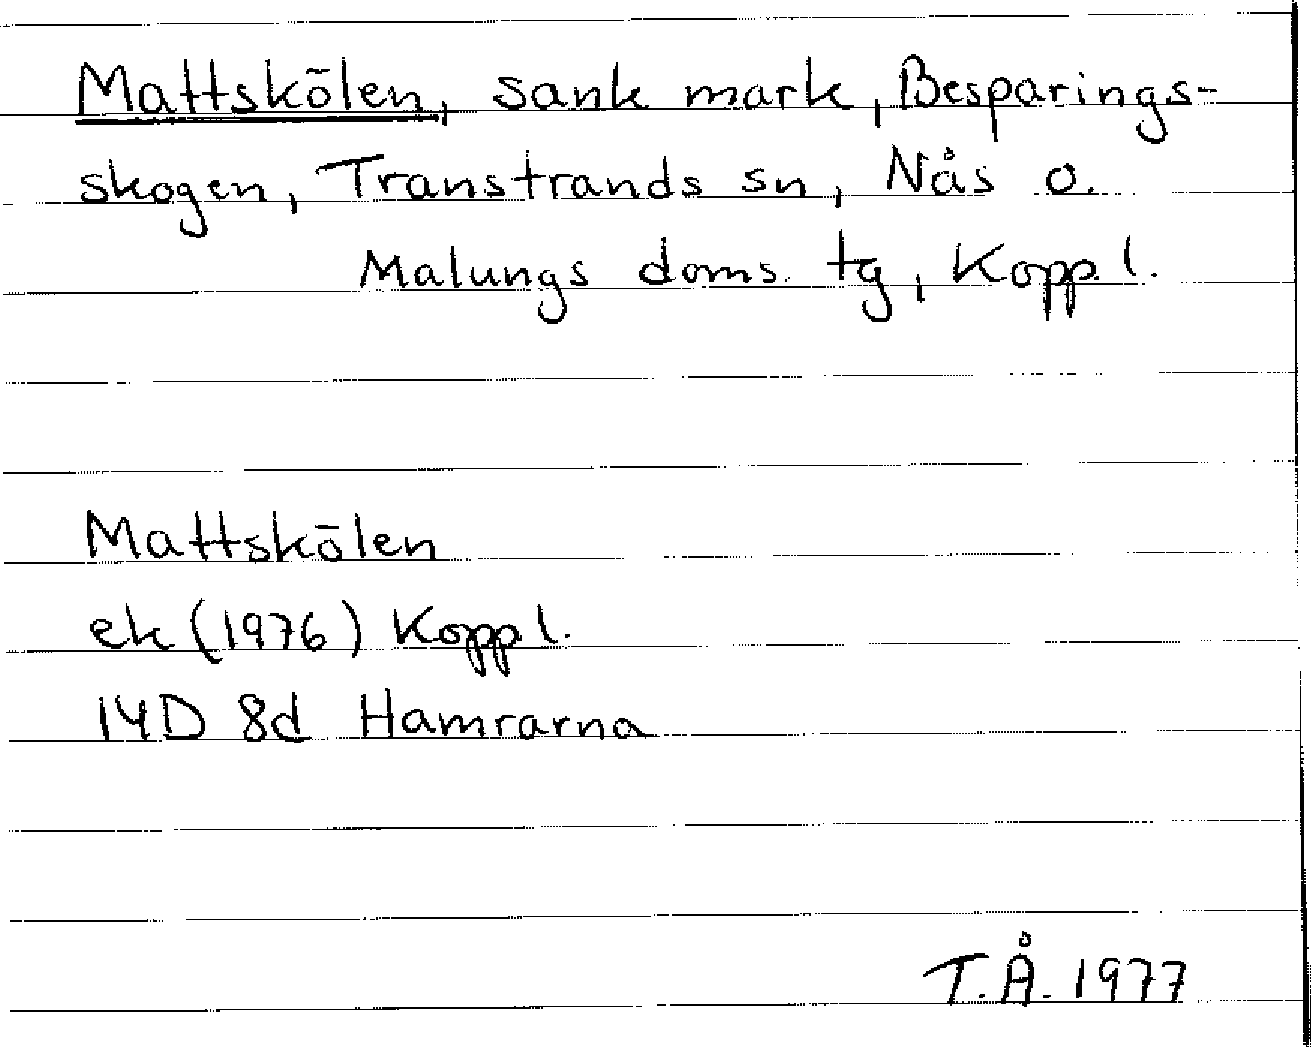 Mattskölen, sank mark, Besparings-
skogen, Transtrands sn, Nås o.
Malungs doms. tg, Kopp.l.
Mattskölen
ek (1976) Kopp l.
14D 8d Hamrarna
T.Å. 1977